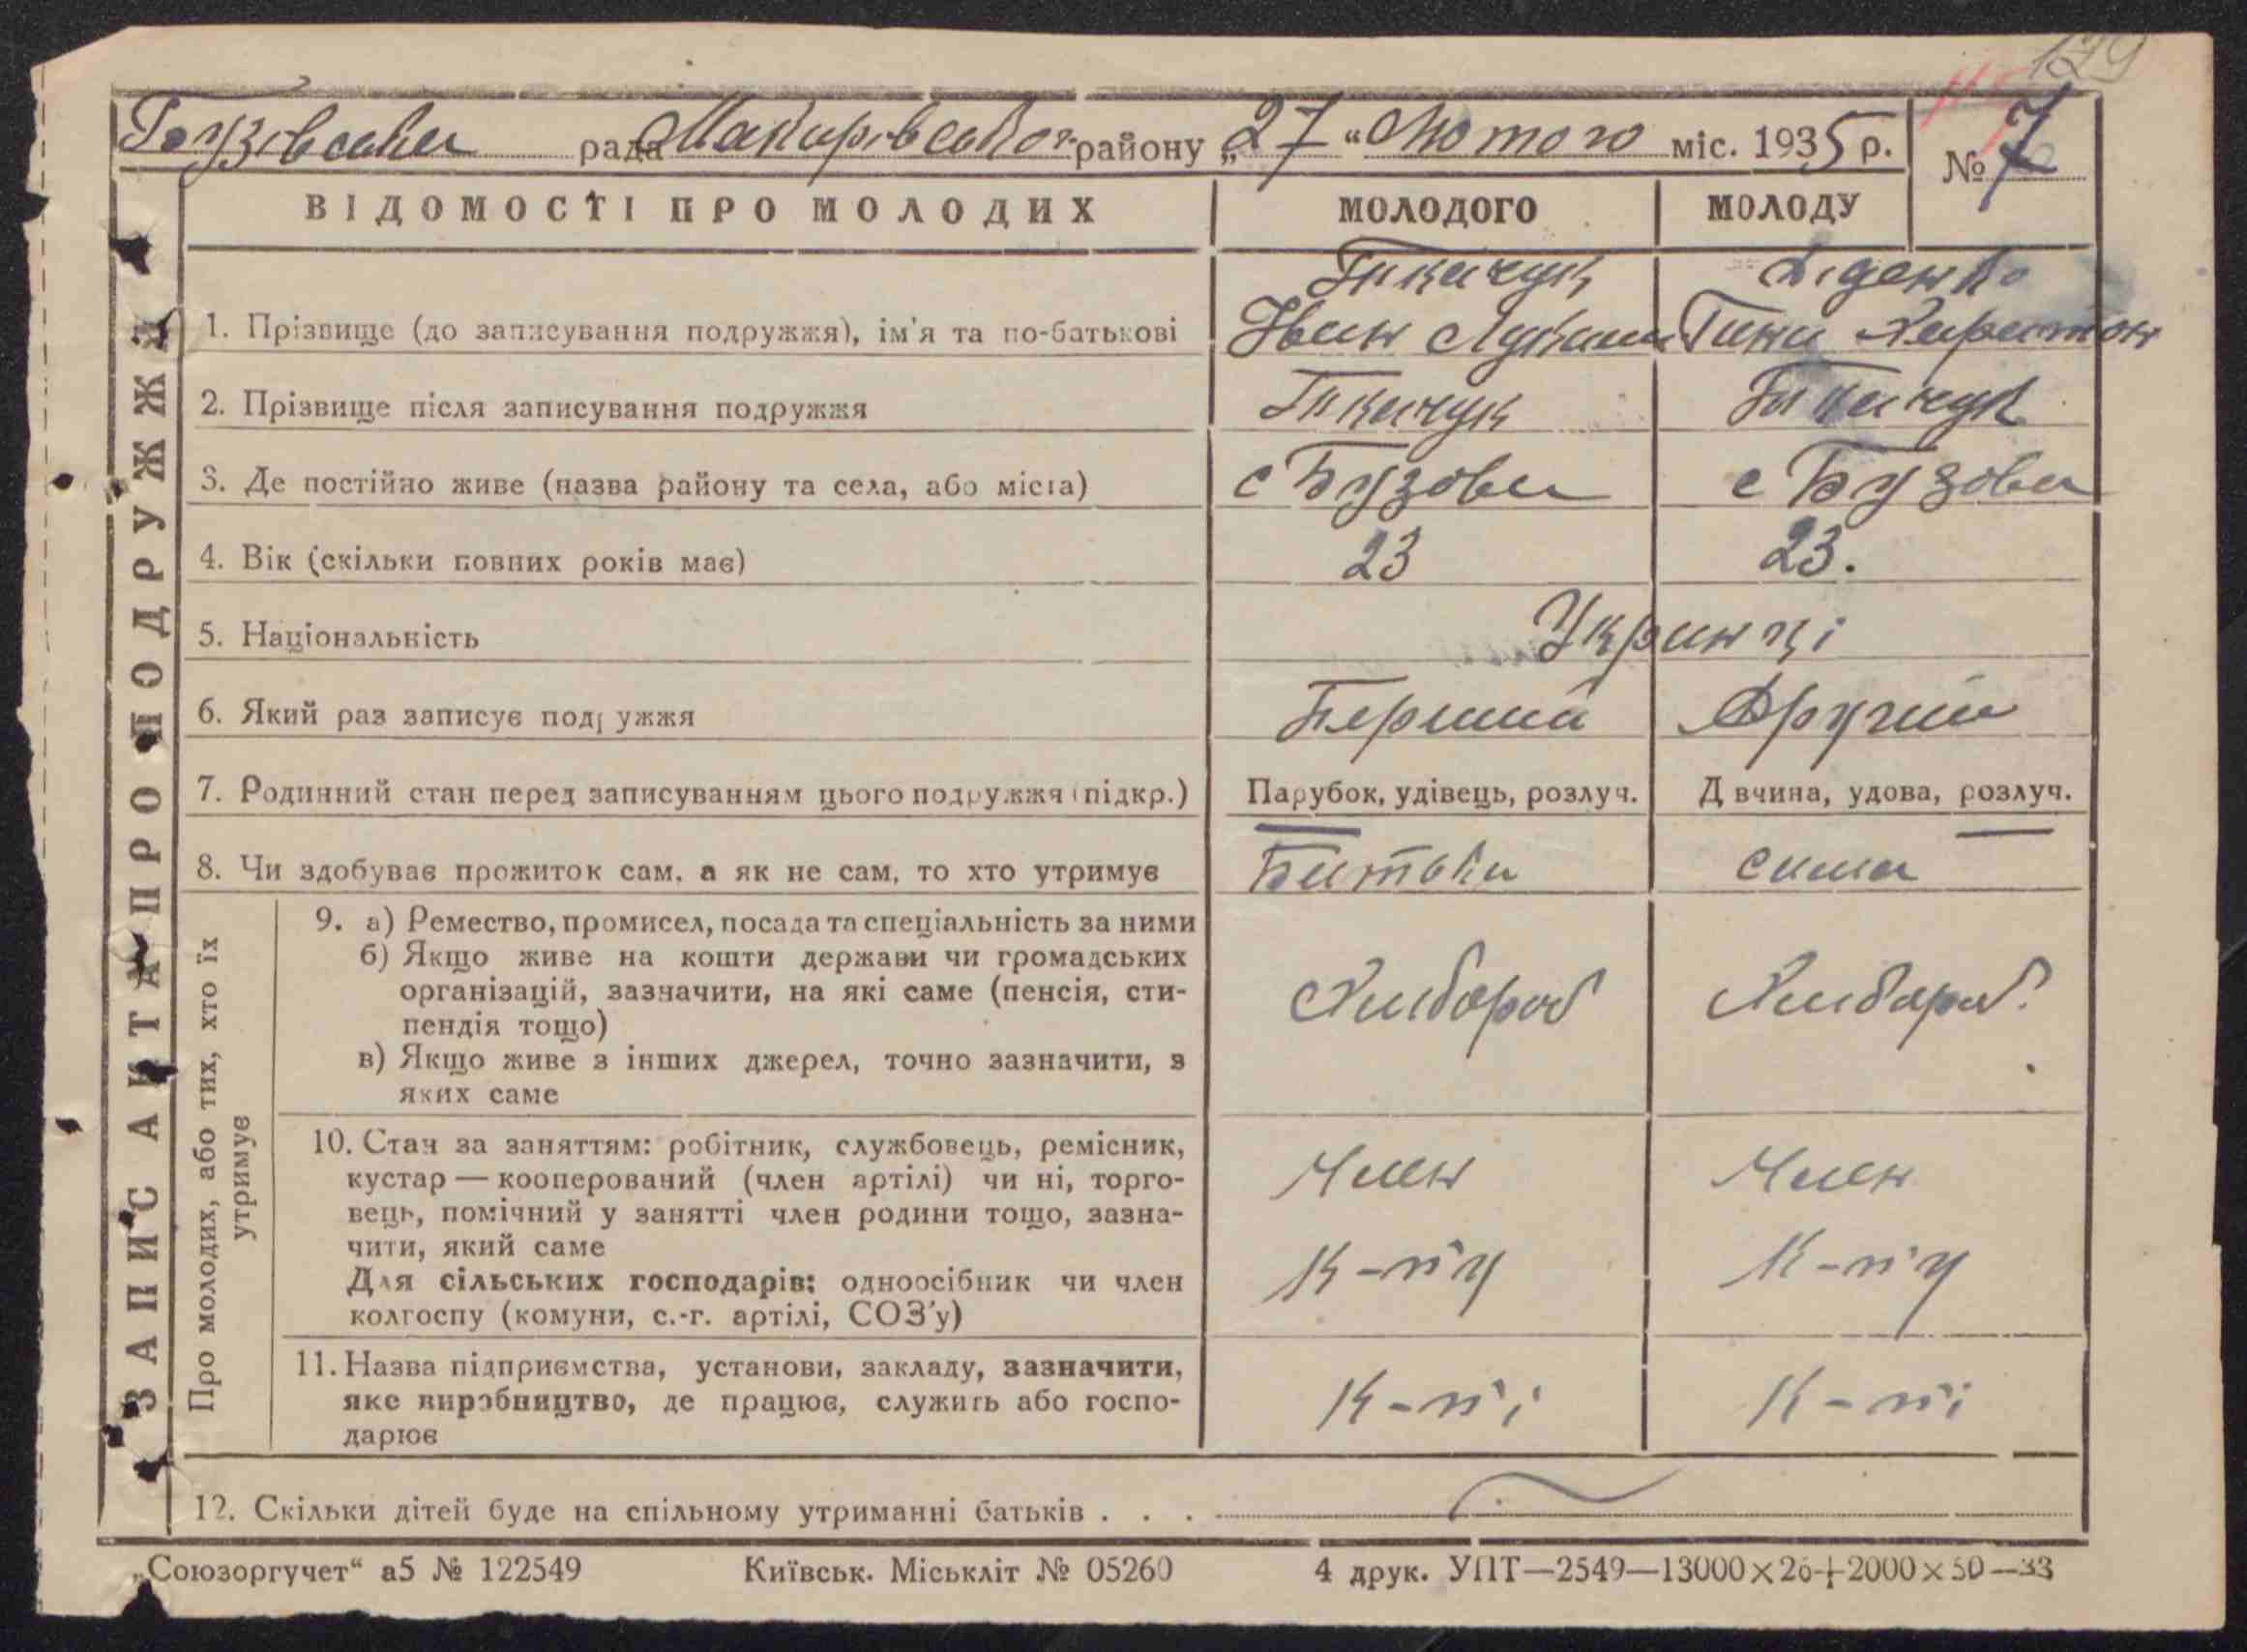 179
Бузівська рада Макарівського району „27“ Лютого міс. 1935 р.
№ 7
ЗАПИС АКТА ПРО ПОДРУЖЖЯ
ВІДОМОСТІ ПРО МОЛОДИХ МОЛОДОГО МОЛОДУ
Ткачук Діденко
1. Прізвище (до записування подружжя), ім'я та по-батькові Іван Лукаш Ганна Харитон
2. Прізвище після записування подружжя Ткачук Ткачук
3. Де постійно живе (назва району та села, або міста) с Бузова с Бузова
4. Вік (скільки повних років має) 23 23.
5. Національність Укранці
6. Який раз записує подружжя Перший Другий
7. Родинний стан перед записуванням цього подружжя (підкр.) Парубок, удівець, розлуч. Дівчина, удова, розлуч.
8. Чи здобуває прожиток сам, а як не сам, то хто утримує Батьки сама
Про молодих, або тих, хто їх
утримує
9. а) Ремество, промисел, посада та спеціальність за ними
б) Якщо живе на кошти держави чи громадських
організацій, зазначити, на які саме (пенсія, сти-
пендія тощо)
в) Якщо живе з інших джерел, точно зазначити, з
яких саме
Хлібороб Хлібороб
10. Стан за заняттям: робітник, службовець, ремісник,
кустар — кооперований (член артілі) чи ні, торго-
вець, помічний у занятті член родини тощо, зазна-
чити, який саме
Для сільських господарів: одноосібник чи член
колгоспу (комуни, с.-г. артілі, СОЗ'у)
Член Член
К-пу К-пу
11. Назва підприємства, установи, закладу, зазначити,
яке виробництво, де працює, служить або госпо-
дарює
К-пі К-пі
12. Скільки дітей буде на спільному утриманні батьків . . .
„Союзоргучет“ а5 № 122549 Київськ. Міськліт № 05260 4 друк. УПТ—2549—13000×26+2000×50—33